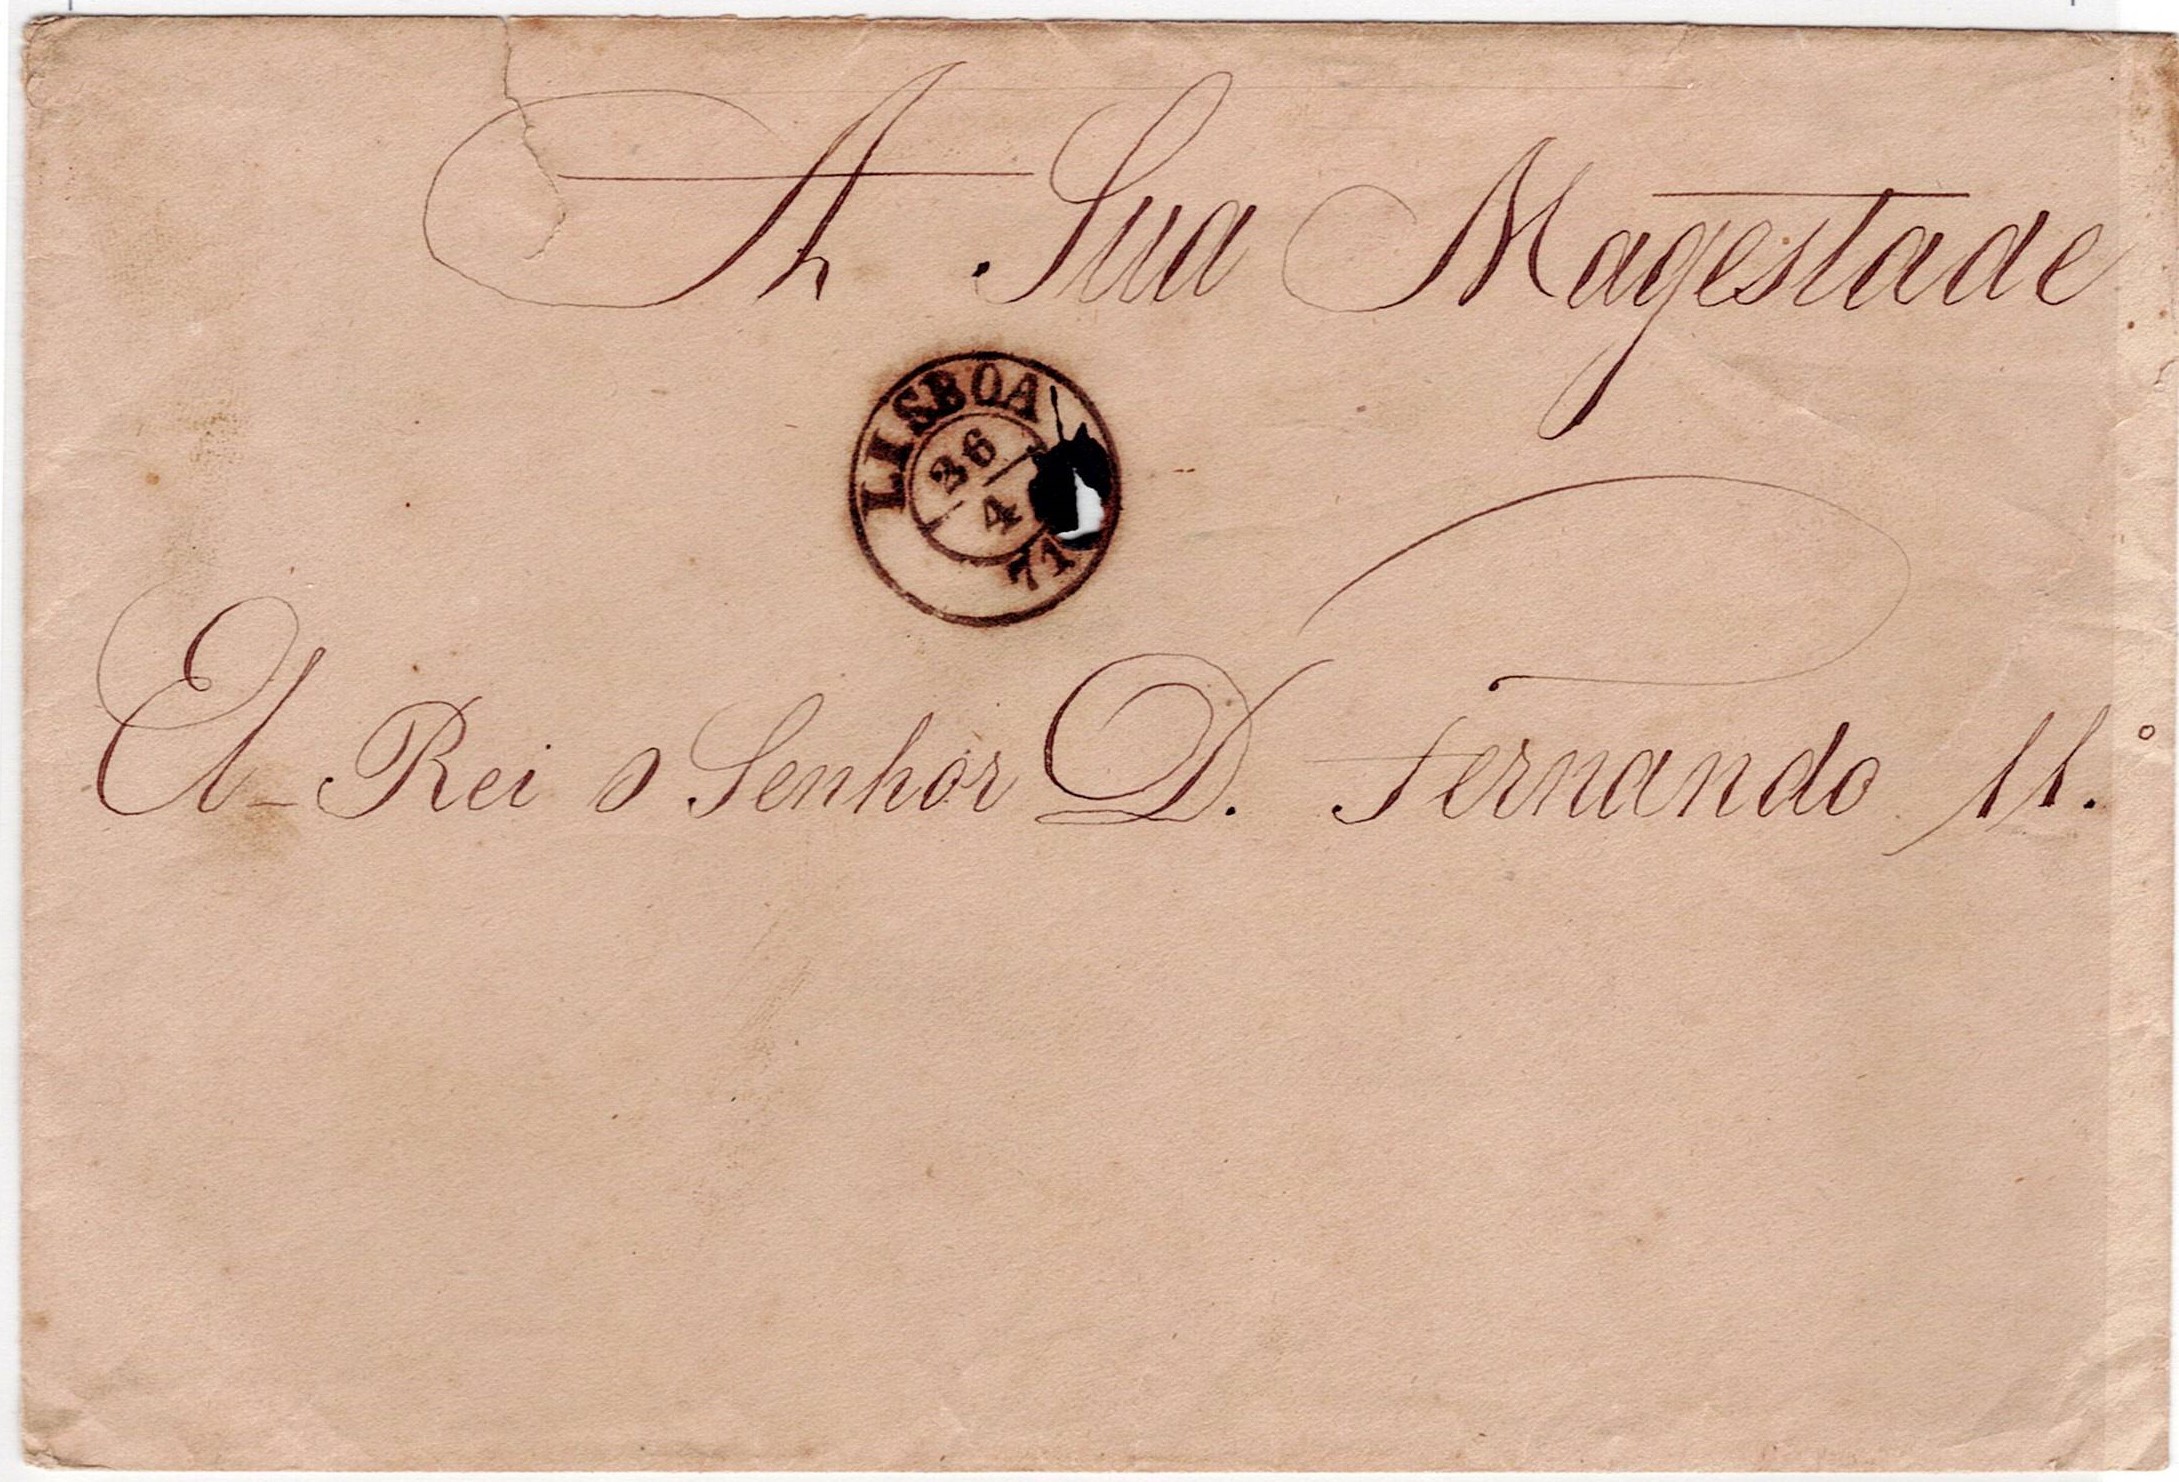 A Sua Magestade
LISBOA
26
4
71
El-Rei o Senhor D. Fernando II.º